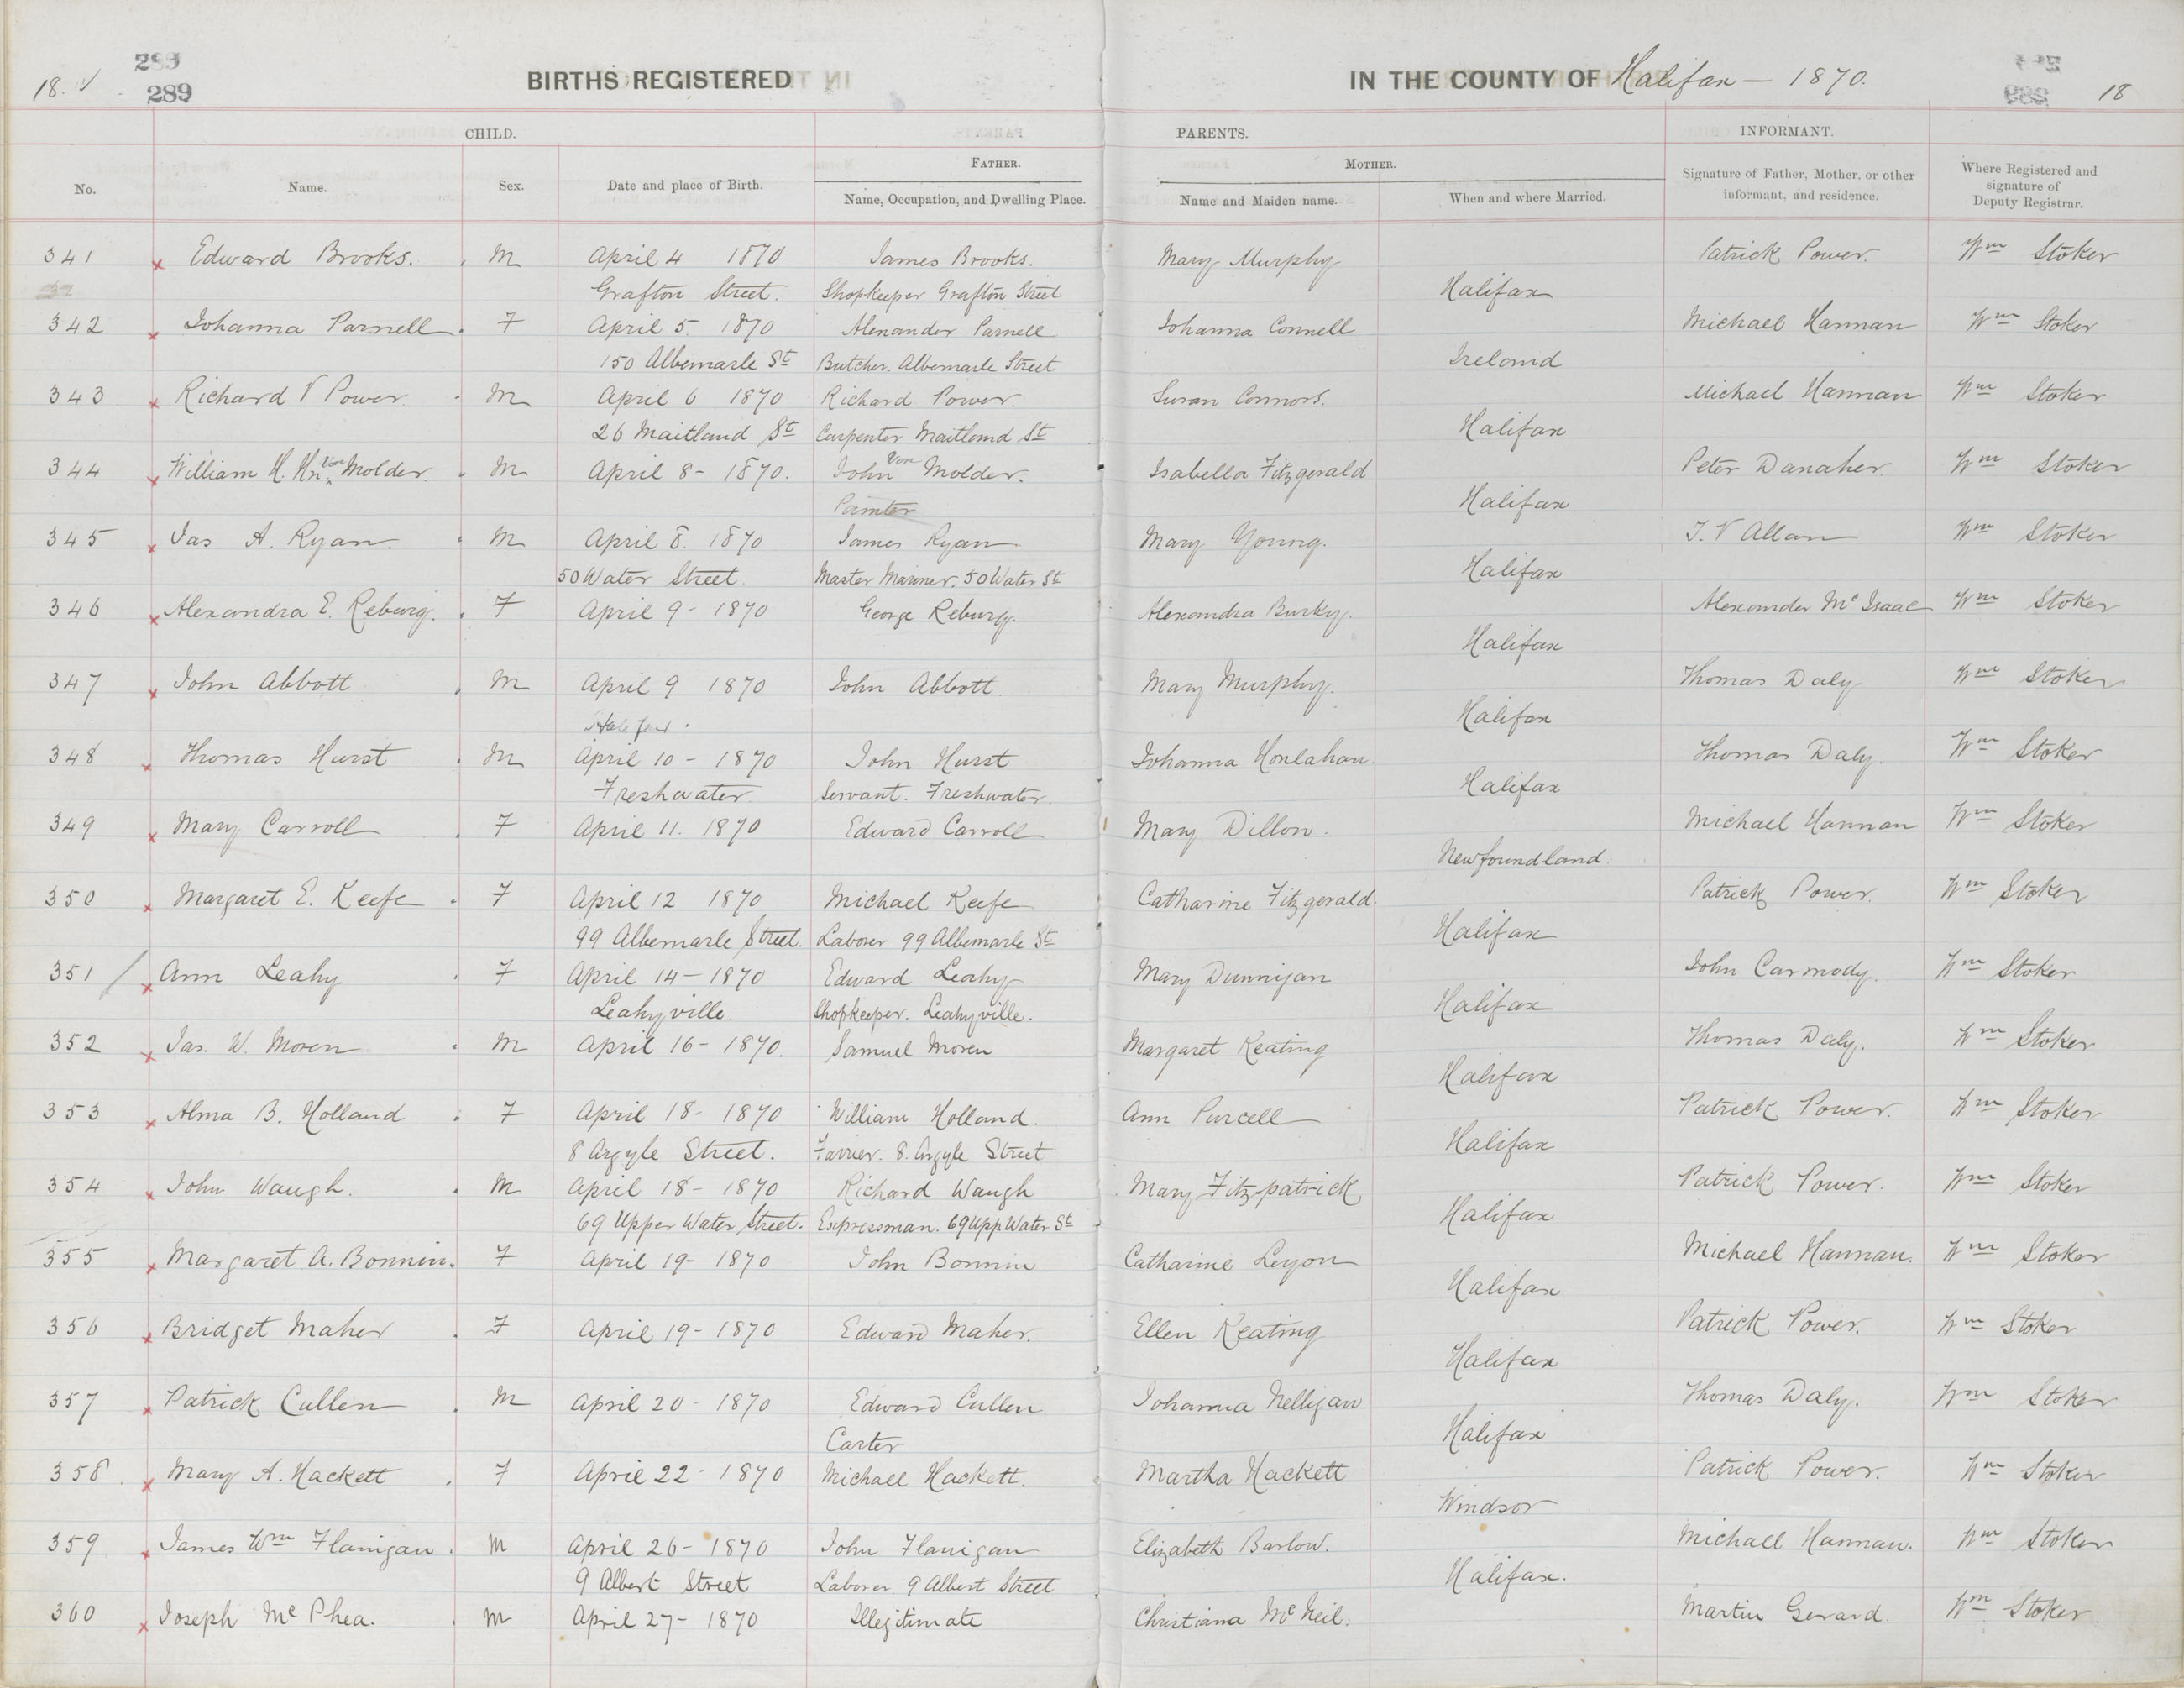 18. 289 289 BIRTHS REGISTERED IN THE COUNTY OF Halifax — 1870. 18
CHILD. PARENTS. INFORMANT.
FATHER. MOTHER.
No. Name. Sex. Date and place of Birth. Name, Occupation, and Dwelling Place. Name and Maiden name. When and where Married. Signature of Father, Mother, or other informant, and residence. Where Registered and signature of Deputy Registrar.
341 Edward Brooks. M April 4 1870 James Brooks. Mary Murphy Patrick Power. Wm Stoker
Grafton Street. Shopkeeper. Grafton Street Halifax
342 Johanna Parnell. F April 5. 1870 Alexander Parnell Johanna Connell Michael Hannan Wm Stoker
150 Albemarle St Butcher. Albemarle Street Ireland
343 Richard V Power. M April 6 1870 Richard Power. Susan Connors. Michael Hannan Wm Stoker
26 Maitland St Carpenter Maitland St Halifax
344 William H. Hn. Von Molder. M April 8 - 1870. John Von Molder. Isabella Fitzgerald Peter Danaher. Wm Stoker
Painter Halifax
345 Jas A. Ryan. M April 8. 1870 James Ryan Mary Young. J. V Allan Wm Stoker
50 Water Street. Master Mariner. 50 Water St Halifax
346 Alexandra E. Reburg. F April 9 - 1870 George Reburg. Alexandra Burky. Alexander Mc Isaac Wm Stoker
Halifax
347 John Abbott M April 9 1870 John Abbott. Mary Murphy. Thomas Daly Wm Stoker
Halifax. Halifax
348 Thomas Hurst M April 10 - 1870 John Hurst Johanna Honlahan. Thomas Daly. Wm Stoker
Freshwater. Servant. Freshwater. Halifax
349 Mary Carroll F April 11. 1870 Edward Carroll Mary Dillon. Michael Hannan Wm Stoker
Newfoundland.
350 Margaret E. Keefe F April 12 1870 Michael Keefe Catharine Fitzgerald. Patrick Power. Wm Stoker
99 Albemarle Street. Laborer 99 Albemarle St Halifax
351 Ann Leahy F April 14 - 1870 Edward Leahy Mary Dunnigan John Carmody. Wm Stoker
Leahyville. Shopkeeper. Leahyville. Halifax
352 Jas. W. Moren M April 16 - 1870. Samuel Moren Margaret Keating Thomas Daly. Wm Stoker
Halifax
353 Alma B. Holland F April 18 - 1870 William Holland. Ann Purcell Patrick Power. Wm Stoker
8 Argyle Street. Farrier. 8. Argyle Street Halifax
354 John Waugh. M April 18 - 1870 Richard Waugh Mary Fitzpatrick Patrick Power. Wm Stoker
69 Upper Water Street. Expressman. 69 Upp Water St Halifax
355 Margaret A. Bonnin. F April 19 - 1870 John Bonnin Catharine Leyon Michael Hannan. Wm Stoker
Halifax
356 Bridget Maher F April 19 - 1870 Edward Maher. Ellen Keating Patrick Power. Wm Stoker
Halifax
357 Patrick Cullen M April 20 - 1870 Edward Cullen Johanna Nelligan Thomas Daly. Wm Stoker
Carter Halifax
358. Mary A. Hackett F April 22 - 1870 Michael Hackett. Martha Hackett Patrick Power. Wm Stoker
Windsor
359 James Wm Flanigan. M April 26 - 1870 John Flanigan Elizabeth Barlow. Michael Hannan. Wm Stoker
9 Albert Street Laborer 9 Albert Street Halifax.
360 Joseph Mc Phea. M April 27 - 1870 Illegitimate Christiana Mc Neil. Martin Gerard Wm Stoker